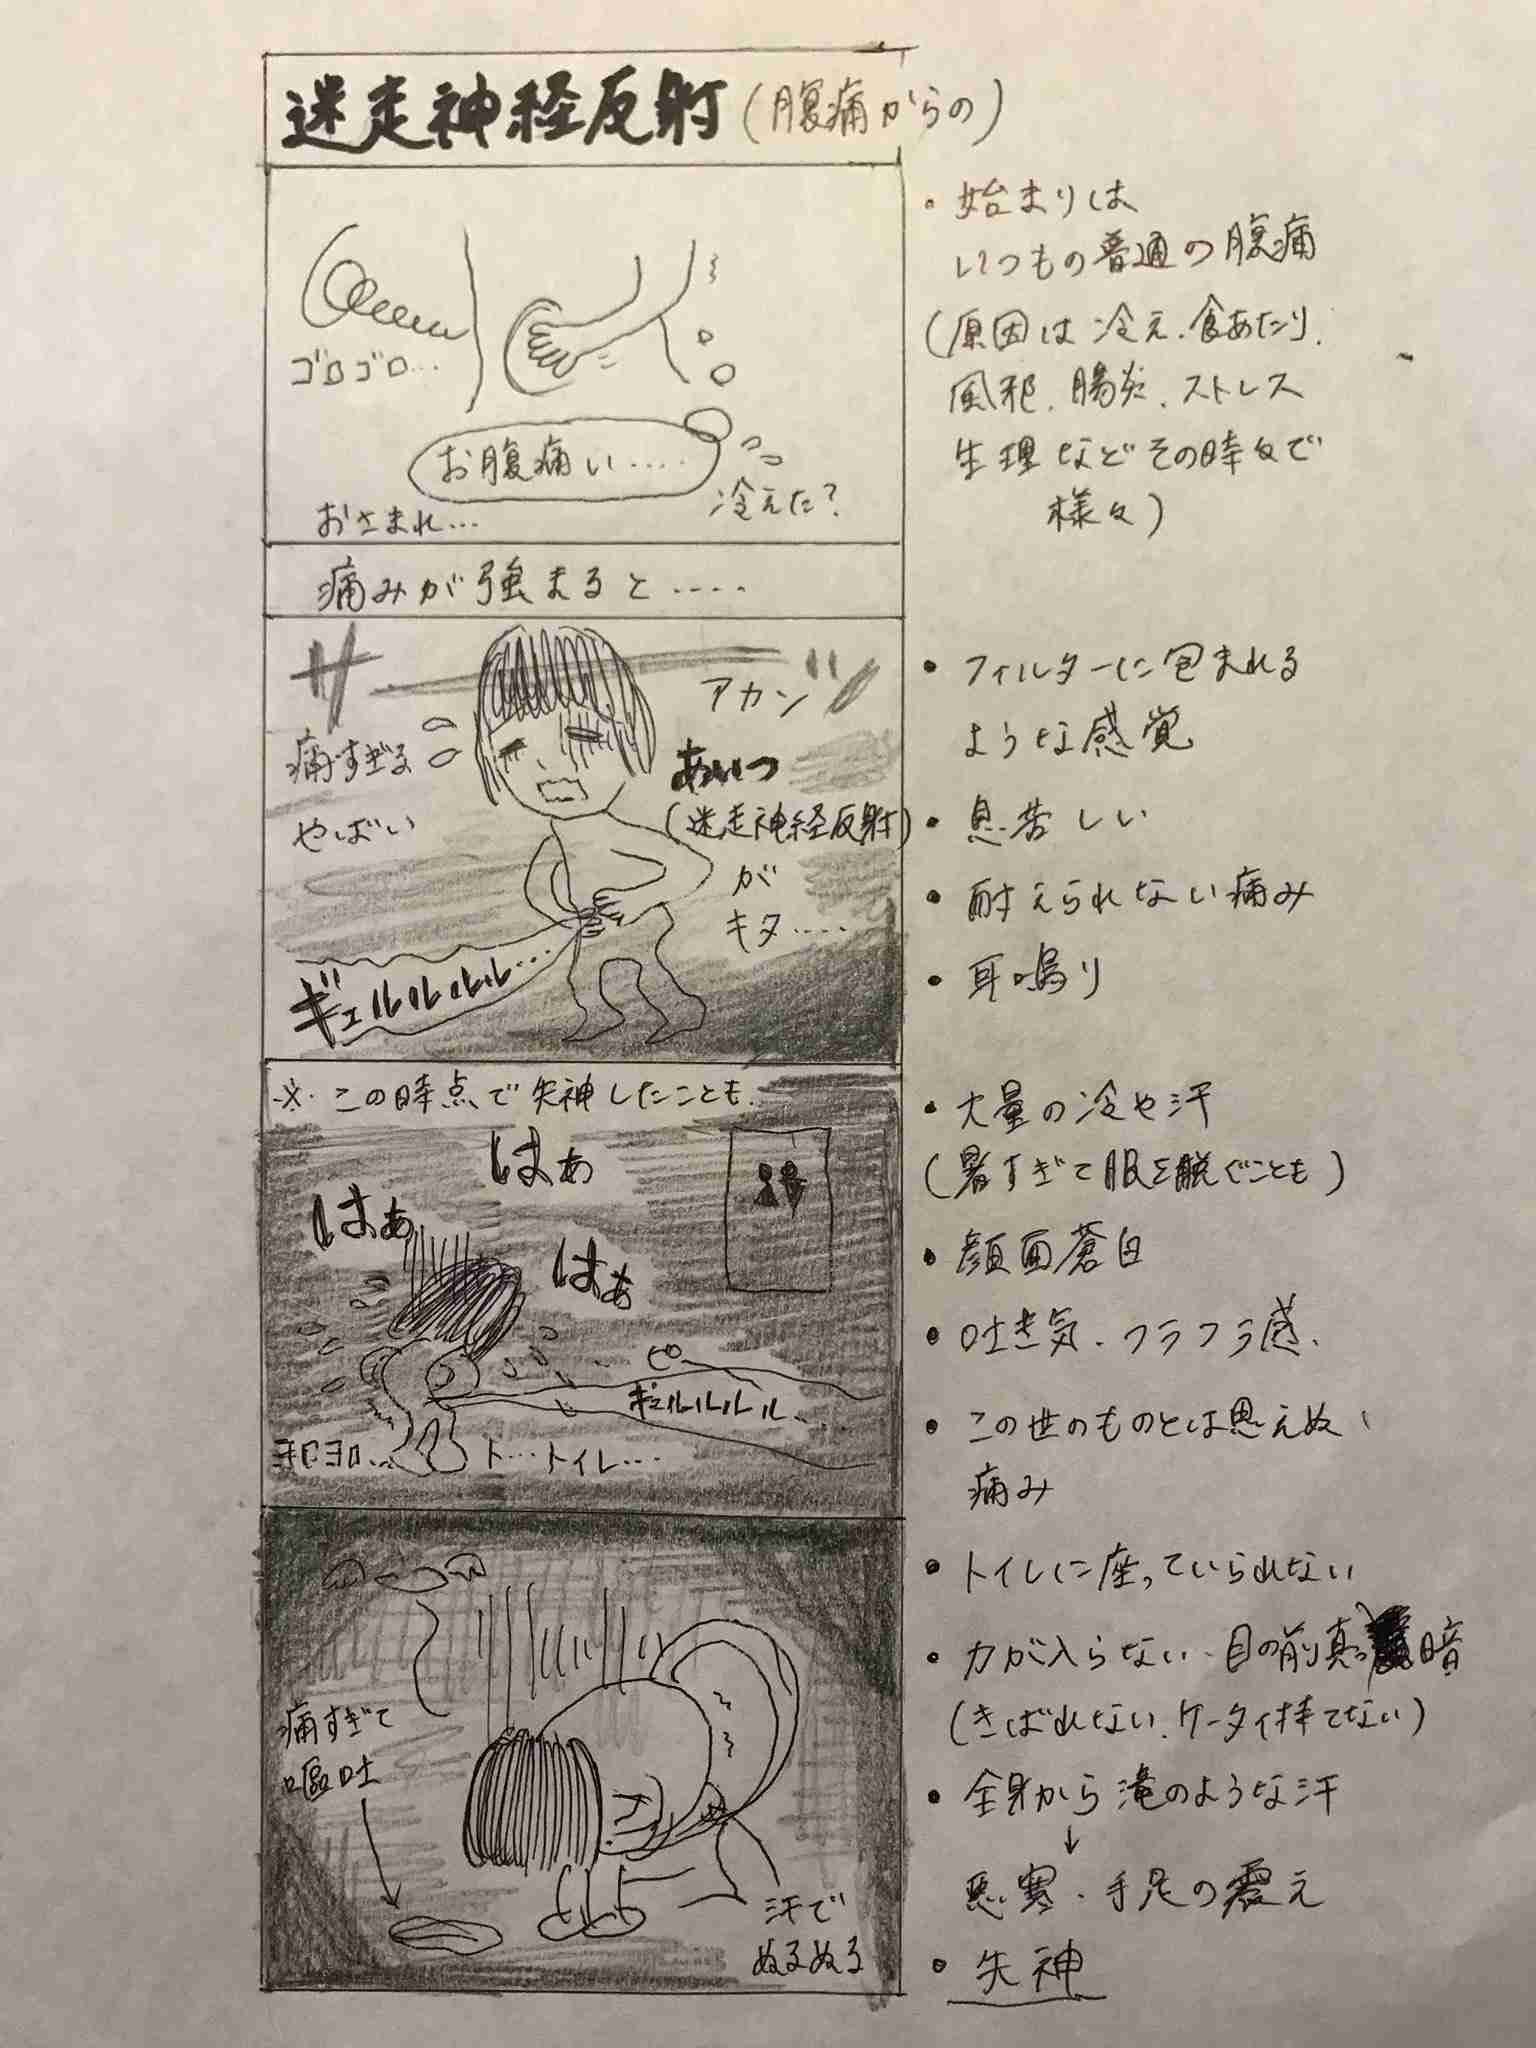 迷走神経反射(腹痛からの)
・始まりは
いつもの普通の腹痛
(原因は冷え、食あたり、
風邪、腸炎、ストレス
生理などその時々で
様々)
ゴロゴロ…
お腹痛い……
冷えた?
おさまれ…
痛みが強まると……
サーッ
アカン
痛すぎる
やばい
あいつ
(迷走神経反射)
が
キタ……
ギュルルルル…
・フィルターに包まれる
ような感覚
・息苦しい
・耐えられない痛み
・耳鳴り
※この時点で失神したことも
はぁ
はぁ
はぁ
ピー
ギュルルルル…
ヨロヨロ…
ト…トイレ…
・大量の冷や汗
(暑すぎて服を脱ぐことも)
・顔面蒼白
・吐き気、フラフラ感、
・この世のものとは思えぬ
痛み
痛すぎて
嘔吐
汗で
ぬるぬる
・トイレに座っていられない
・力が入らない、目の前真っ暗
(きばれない、ケータイ持てない)
・全身から滝のような汗
↓
悪寒、手足の震え
・失神